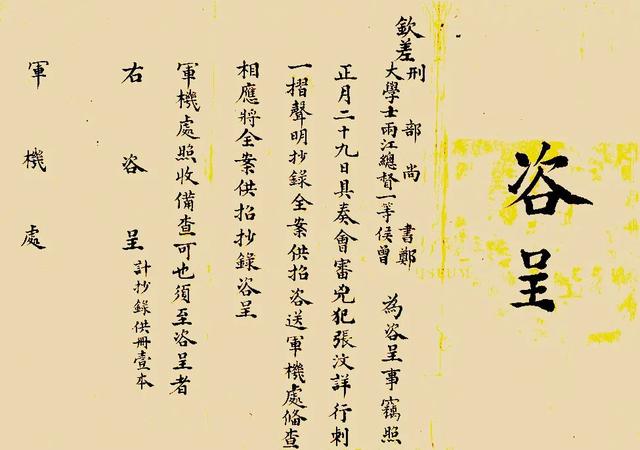 咨呈
欽差
刑部尚書鄭
大學士兩江總督一等侯曾
為咨呈事竊照
正月二十九日具奏會審兇犯張汶詳行刺
一摺聲明抄錄全案供招咨送軍機處備查
相應將全案供招抄錄咨呈
軍機處照收備查可也須至咨呈者
右咨呈
計抄錄供冊壹本
軍機處